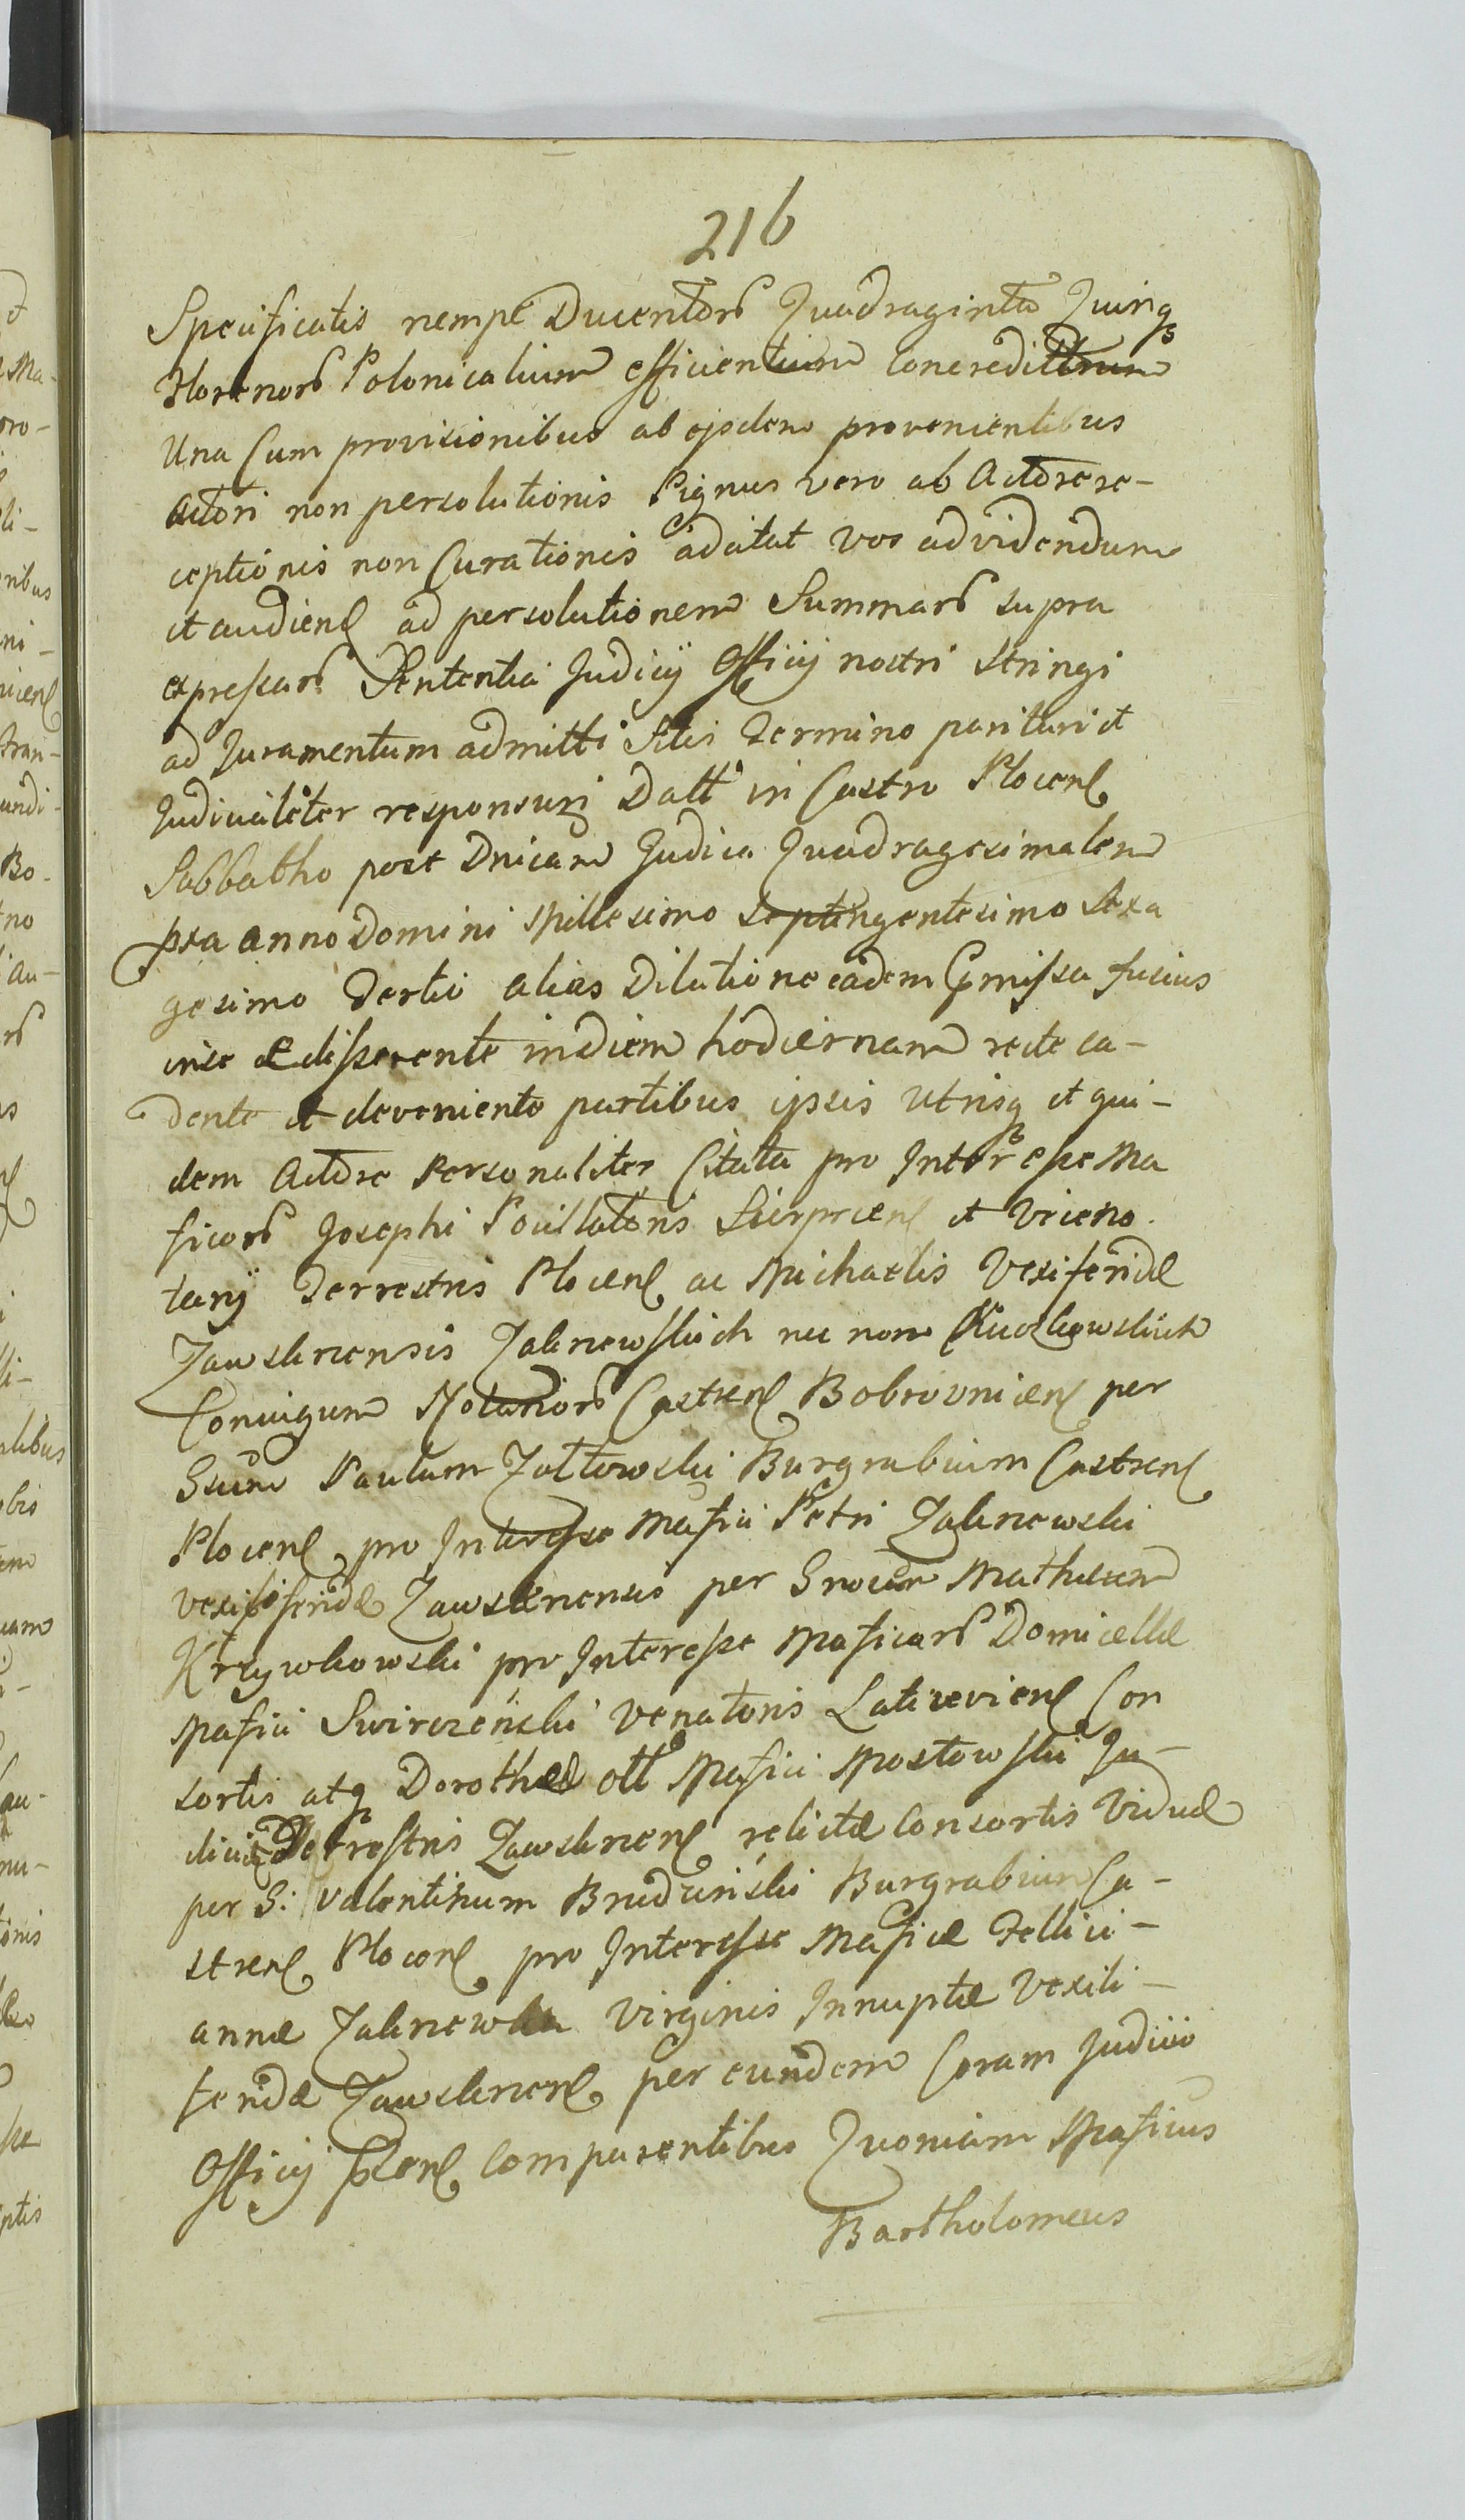 216
Specificatis nempe Ducentor Quadraginta Quinq
Florenor Polonicalium efficientium Concredittum
Una Cum provisionibus ab ejsdem provenientibus
Actori non persolutionis Pignus vero ab Actore re-
ceptionis non Curationis adcitat vos ad videndum
et audien ad persolutionem Summar supra
expressar Sententia Judicij Officij nostri stringi
ad Juramentum admitti Sitis Termino parituri et
Judicialiter responsuri Datt in Castro Plocen
Sabbatho post Dnicam Judica Quadragesimalem
pxa Anno Domini Millesimo Septingentesimo Sexa
gesimo Tertio alias Dilatione eadem pmissa fusius
in se edisserente in diem hodiernam recte ca-
dente et deveniente partibus ipsis utrisq et qui-
dem Actore Personaliter Citata pro Interesse Ma
ficor Josephi Pocillatoris Sierprcen et Viceno
tarij Terrestris Plocen ac Michaelis Vexiferidæ
Zawskrnensis Zakrzewskich nec non Kuczkowskich
Conjugum Notarior Castren Bobrovnicen per
Gsum Paulum Zołtowski Burgrabium Castren
Plocen pro Interesse Mafici Petri Zakrzewski
vexiliferidæ Zawskrnensis per Gnosum Mathæum
Krzywkowski pro Interesse Maficar Domicellæ
Mafici Swirczenski Venatoris Laticzevien Con
sortis atq Dorotheæ olt Mafici Mostowski Ju-
dicis Terrestris Zawskrnen relictæ Consortis Viduæ
per G: Valentinum Brudzinski Burgrabium Ca-
stren Plocen pro Interesse Maficæ Fellici-
annæ Zakrzewska Virginis Innuptæ Vexili-
feridæ Zawskrnen per eundem Coram Judicio
Officij pten Comparentibus Quoniam Maficus
Bartholomeus